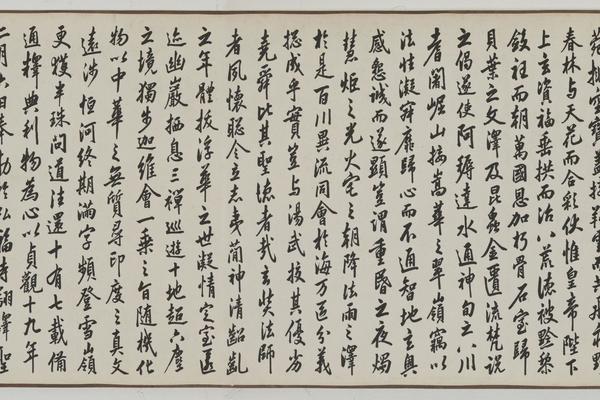 春林與天花而合彩伏惟皇帝陛下
上玄資福垂拱而治八荒德被黔黎
斂衽而朝萬國恩加朽骨石室歸
貝葉之文澤及昆蟲金匱流梵說
之偈遂使阿耨達水通神甸之八川
耆闍崛山接嵩華之翠嶺竊以
法性凝寂靡歸心而不通智地玄奧
感懇誠而遂顯豈謂重昏之夜燭
慧炬之光火宅之朝降法雨之澤
於是百川異流同會於海万區分義
揔成乎實豈与湯武挍其優劣
堯舜比其聖德者哉玄奘法師
者夙懷聰令立志夷簡神清齠齔
之年體拔浮華之世凝情定室匿
迹幽巖栖息三禪巡遊十地超六塵
之境獨步迦維會一乘之旨随機化
物以中華之無質尋印度之真文
遠涉恒河終期滿字頻登雪嶺
更獲半珠問道往還十有七載備
通釋典利物為心以貞觀十九年
二月六日奉勅於弘福寺翻譯聖